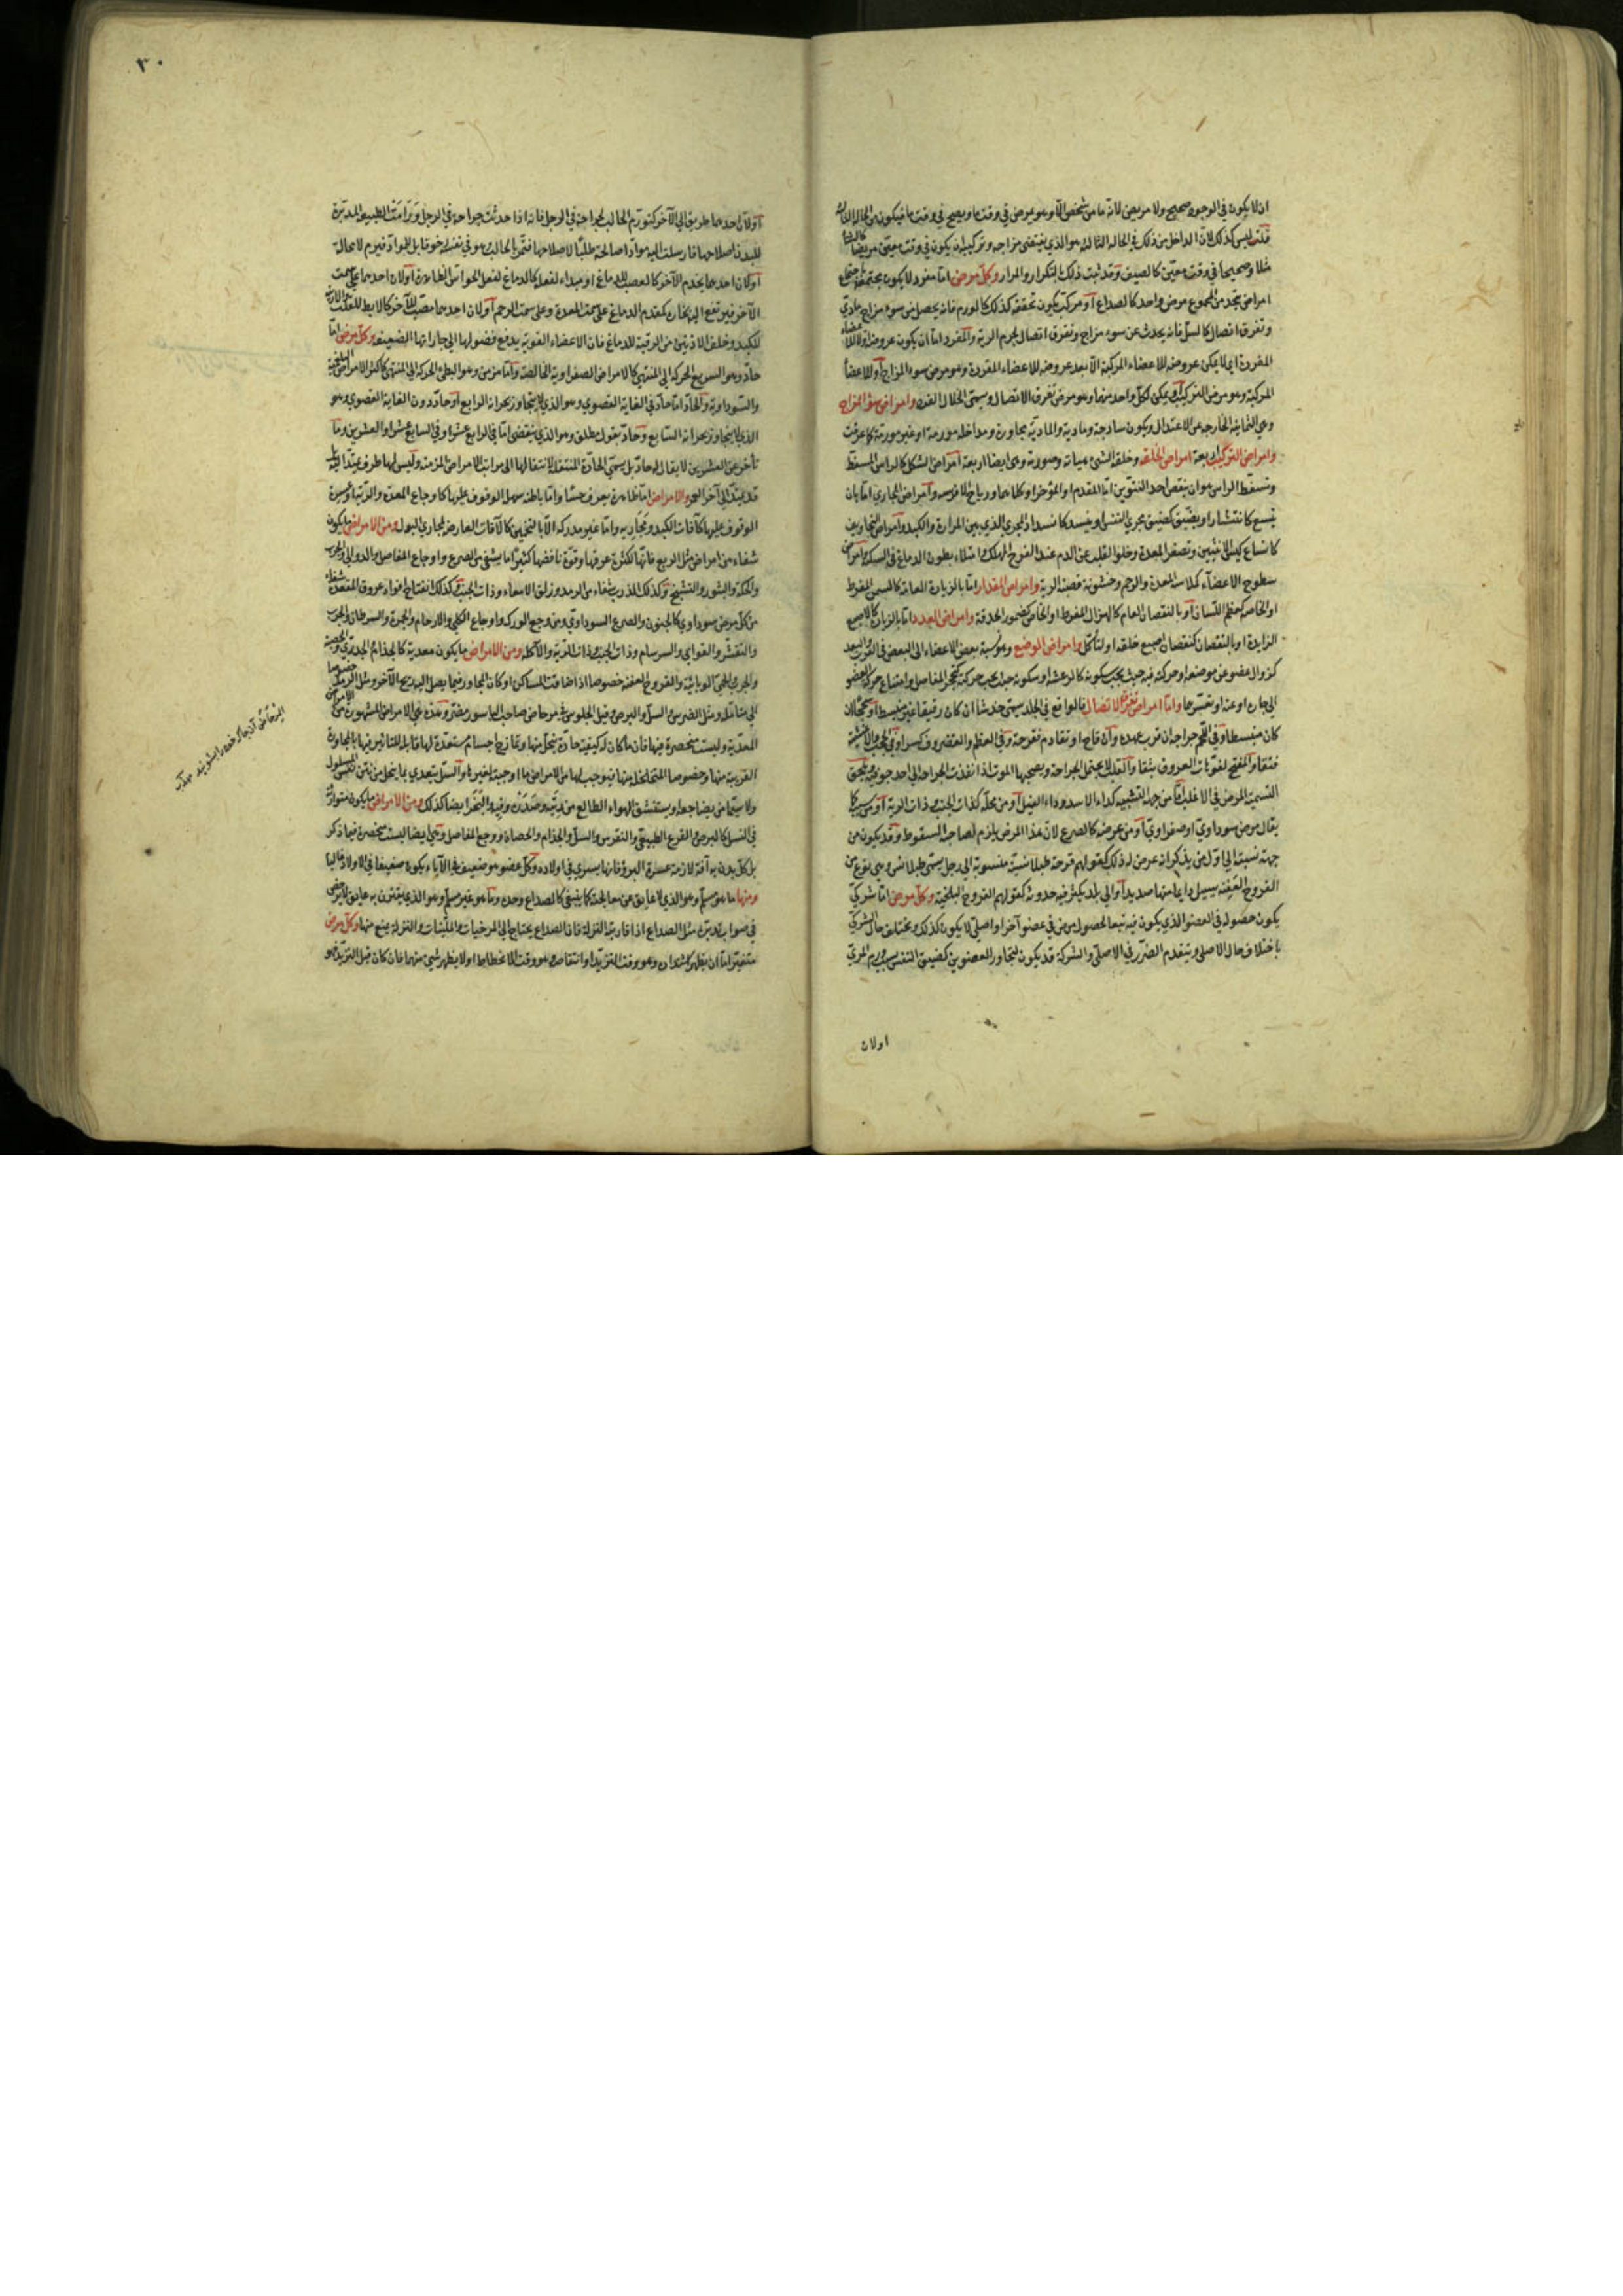 اذ لا يكون في الوجود صحيح ولا مريض لانه ما من شخص الا وهو يمرض في وقت ما ويصح في وقت ما فيكون من الحالة الثالثة
قلت ليس كذلك لان الداخل من ذلك في الحالة الثالثة هو الذي يقتضي مزاجه وتركيبه ان يكون في وقت معين مريضا كالشتا
مثلا وصحيحا في وقت معين كالصيف وقد ثبت ذلك بالتكرار والمرار وكل مرض اما مفرد لا يكون بجتمعه باجتماع
امراض يتحد من المجموع مرض واحد كالصداع او مركب يكون تحققه كذلك كالورم فانه يحصل من سوء مزاج مادي
وتفرق اتصال كالسل فانه يحدث عن سوء مزاج وتفرق اتصال لجرم الرية والمفرد اما ان يكون عروضه اولا للاعضاء
المفردة اي لا يمكن عروضه للاعضاء المركبة الا بعد عروضه للاعضاء المفردة وهو مرض سوء المزاج او للاعضاء
المركبة وهو مرض التركيب او يمكن لكل واحد منهما وهو مرض تفرق الاتصال ويسمى انحلال الفرد وامراض سوء المزاج
وهي الثمانية الخارجة عن الاعتدال ويكون ساذجة ومادية والمادية مجاورة ومداخلة مورمة او غير مورمة كما عرفت
وامراض التركيب اربعة امراض الخلقة وخلقة الشيء هيأته وصورته وهي ايضا اربعة امراض الشكل كالراس المسفط
وتسفط الراس هو ان ينقص احد النتوين اما المقدم او المؤخر او كلاهما ورياح الافرسة وامراض المجاري اما بان
يتسع كانتشار او يضيق كضيق مجرى النفس او ينسد كانسداد المجرى الذي بين المرارة والكبد وامراض التجاويف
كاتساع كيس الانثيين وتصغر المعدة وخلو القلب عن الدم عند الفرح المهلك وامتلاء بطون الدماغ في السكتة وامراض
سطوح الاعضاء كملاسة المعدة والرحم وخشونة قصبة الرية وامراض المقدار اما بالزيادة العامة كالسمن المفرط
او الخاصة كعظم اللسان او بالنقصان العام كالهزال المفرط او الخاص كضمور الحدقة وامراض العدد اما بالزيادة كالاصبع
الزايدة او بالنقصان كنقصان اصبع خلقة او لتأكل وامراض الوضع وهو نسبة بعض الاعضاء الى البعض في القرب والبعد
كزوال عضو عن موضعه او حركته فيه حيث يجب سكونه كالرعشة او سكونه حيث يجب حركته كتحجر المفاصل وامتناع حركة العضو
الى جاره او عنه او تعسرهما واما امراض تفرق الاتصال فالواقع في الجلد يسمى خدشا ان كان رقيقا غير منبسط او سحجا ان
كان منبسطا وفي اللحم جراحة ان قرب عهده وان قاح او تقادم فقرحة وفي العظم والغضروف كسرا وفي الحجب والاغشية
فتقا والمفتح لفوهات العروق بثقا والقلب لا يحتمل الجراحة ويصحبها الموت اذا نفذت الجراحة الى احد جوفيه ويلحق
التسمية المرض في الاغلب اما من جهة التشبيه كداء الاسد وداء الفيل او من محله كذات الجنب وذات الرية او من سببه كما
يقال مرض سوداوي او صفراوي او من عرضه كالصرع لان هذا المرض يلزم لصاحبه السقوط وقد يكون من
جهة نسبته الى اول من يذكر انه عرض له ذلك كقولهم قرحة طيلانسية منسوبة الى رجل يسمى طيلانس وهي نوع من
القروح العفنة يسيل دايما منها صديد او الى بلد يكثر فيه حدوثه كقولهم القروح البلخية وكل مرض اما شركي
يكون حصوله في العضو الذي يكون فيه تبعا لحصول مرض في عضو آخر او اصلي لا يكون كذلك ويختلف حال الشركي
باختلاف حال الاصلي ويتقدم الضرر في الاصلي والشركة قد يكون لتجاور العضوين كضيق النفس بسبب ورم المري
اولان
٣٠
اولان احدهما طريق الى الآخر كتورم الحالب لجراحة في الرجل فانه اذا حدثت جراحة في الرجل ورامت الطبيعة المدبرة
للبدن اصلاحها فارسلت اليه مواد صالحة طلبا لاصلاحها فتمر بالحالب وهو في نفسه رخو قابل للمواد فيرم لا محالة
اولان احدهما يخدم الآخر كالعصب للدماغ او مبداء لفعله كالدماغ لفعل الحواس الظاهرة اولان احدهما على سمت
الآخر فيرتفع اليه بخاره كمقدم الدماغ على سمت المعدة وعلى سمت الرحم اولان احدهما مصب للآخر كالابط للقلب والاربية
للكبد وخلف الاذنين من الرقبة للدماغ فان الاعضاء القوية يدفع فضولها الى جاراتها الضعيفة وكل مرض اما
حاد وهو السريع الحركة الى المنتهى كالامراض الصفراوية الخالصة واما مزمن وهو البطي الحركة الى المنتهى كاكثر الامراض البلغمية
والسوداوية والحاد اما حاد في الغاية القصوى وهو الذي لا يتجاوز بحرانه الرابع او حاد دون الغاية القصوى وهو
الذي لا يتجاوز بحرانه السابع وحاد بقول مطلق وهو الذي ينقضي اما في الرابع عشر او في السابع عشر او العشرين وما
تأخر عن العشرين لا يقال له حاد بل يسمى الحادة المنتقلة لانتقالها الى مراتب الامراض المزمنة وليس لها طرف ممتد اليه بل
قد يمتد الى آخر العمر والامراض اما ظاهرة يعرف حسا واما باطنة سهل الوقوف عليها كاوجاع المعدة والرية او عسرة
الوقوف عليها كآفات الكبد ومجاريه واما غير مدركة الا بالتخمين كالآفات العارضة لمجاري البول ومن الامراض ما يكون
شفاء من امراض مثل الربع فانها لكثرة عرقها وقوة نافضها كثيرا ما يشفي من الصرع واوجاع المفاصل والدوالي والجرب
والحكة والبثور والتشنج وكذلك الذرب شفاء من الرمد وزلق الامعاء وذات الجنب وكذلك انفتاح افواه عروق المقعدة شفاء
من كل مرض سوداوي كالجنون والصرع السوداوي ومن وجع الورك واوجاع الكلى والارحام والجمرة والسرطان والجرب
والتقشر والقوابي والسرسام وذات الجنب وذات الرية والآكلة ومن الامراض ما يكون معدية كالجذام والجدري والحصبة
والجرب والحمى الوبائية والقروح العفنة خصوصا اذا ضاقت المساكن او كان المجاور فيما يصل اليه ريح الآخر ومثل الرمد خصوصا
الى متأمله ومثل الضرس والسل والبرص وقيل الجلوس في مرحاض صاحب الباسور مضر وهذه هي الامراض المشهورة من الامراض
المعدية وليست منحصرة فيها فان ما كان له كيفية حادة يتحلل منها ويمازج اجسام مستعدة لها قابلة للتأثير فيها بالمجاورة
القريبة منها وخصوصا المتخلخلة منها فيوجب لها من الامراض ما اوجبته لغيرها والسل يتعدي بما يتحلل من نفس المسلول
ولا سيما من يضاجعه او يستنشق الهواء الطالع من رئته وصدره وفيه والبخر ايضا كذلك ومن الامراض ما يكون متوارثة
في النسل كالبرص والقرع الطبيعي والنقرس والسل والجذام والحصاة ووجع المفاصل وهي ايضا ليست منحصرة فيما ذكر
بل كل بدن به آفة لازمة عسرة البرؤ فانها يسري في اولاده وكل عضو هو ضعيف في الآباء يكون ضعيفا في الاولاد غالبا
ومنها ما هو مسلم وهو الذي لا عايق عن معالجته كما ينبغي كالصداع وحده وما هو غير مسلم وهو الذي يقترن به عايق لا يرخص
في صواب تدبيره مثل الصداع اذا قارنته النزلة فان الصداع يحتاج الى المرخيات والملينات والنزلة يمنع منها وكل مرض
متغير اما ان يظهر اشتداده وهو وقت التزيد او انتقاصه وهو وقت الانحطاط او لا يظهر شيء منهما فان كان قبل التزيد فهو